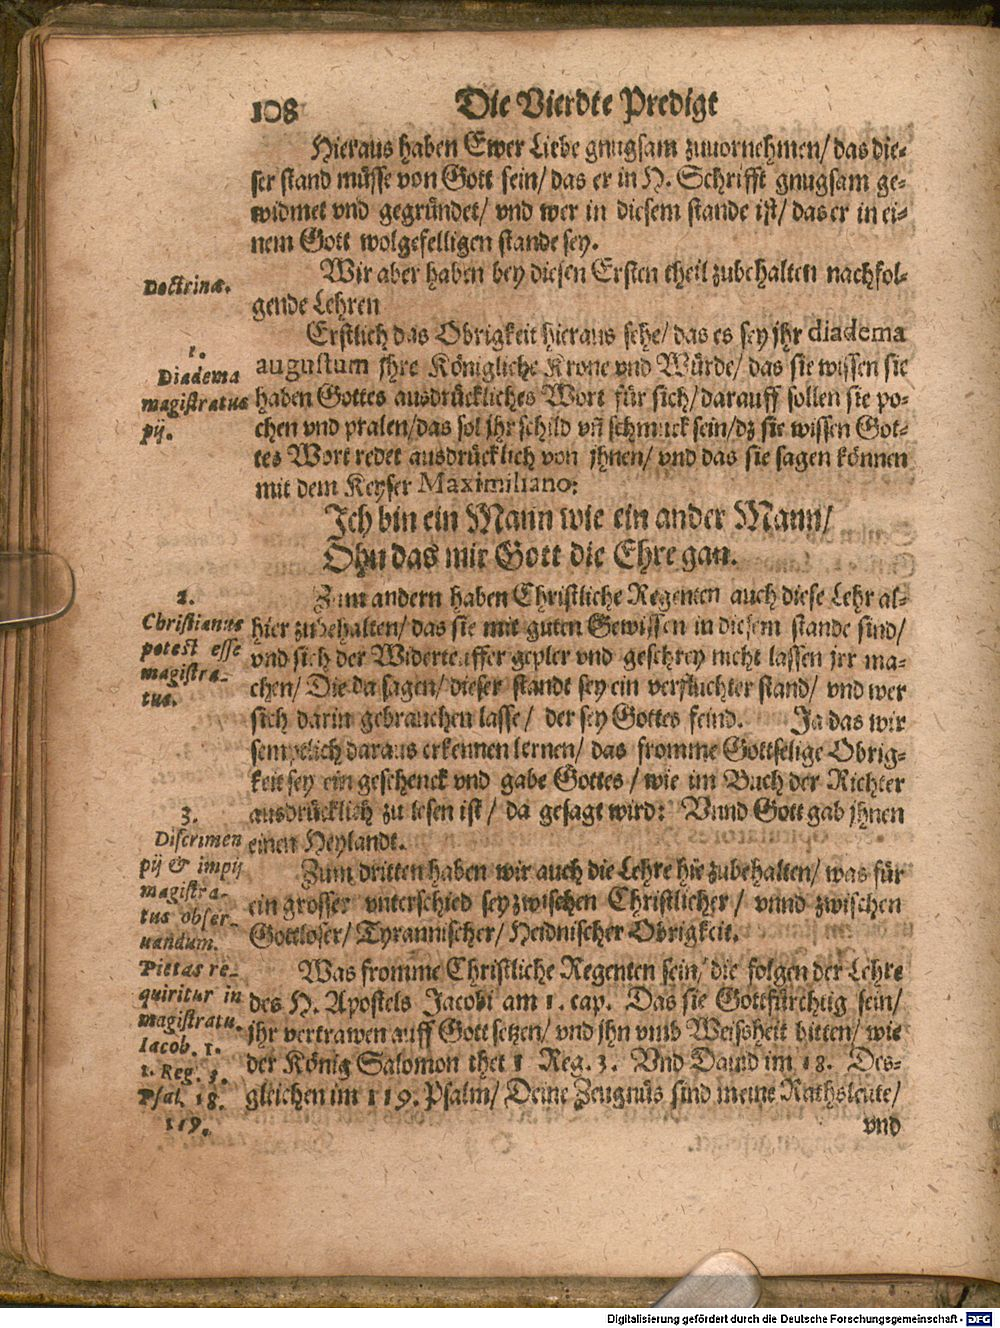 108 Die Vierdte Predigt
Hieraus haben Ewer Liebe gnugsam zuuornehmen/ das die-
ser stand müsse von Gott sein/ das er in H. Schrifft gnugsam ge-
widmet vnd gegründet/ vnd wer in diesem stande ist/ das er in ei-
nem Gott wolgefelligen stande sey.
Wir aber haben bey diesen Ersten theil zubehalten nachfol-
gende Lehren
Doctrinæ.
Erstlich das Obrigkeit hieraus sehe/ das es sey jhr diadema
augustum jhre Königliche Krone vnd Würde/ das sie wissen sie
haben Gottes ausdrückliches Wort für sich/ darauff sollen sie po-
chen vnd pralen/ das sol jhr schild vñ schmuck sein/ dz sie wissen Got-
tes Wort redet ausdrücklich von jhnen/ vnd das sie sagen können
mit dem Keyser Maximiliano:
1.
Diadema
magistratus
pij.
Ich bin ein Mann wie ein ander Mann/
Ohn das mir Gott die Ehre gan.
Zum andern haben Christliche Regenten auch diese Lehr al-
hier zubehalten/ das sie mit guten Gewissen in diesem stande sind/
vnd sich der Widerteuffer gepler vnd geschrey nicht lassen jrr ma-
chen/ Die da sagen/ dieser standt sey ein verfluchter stand/ vnd wer
sich darin gebrauchen lasse/ der sey Gottes feind. Ja das wir
semptlich daraus erkennen lernen/ das fromme Gottselige Obrig-
keit sey ein geschenck vnd gabe Gottes/ wie im Buch der Richter
ausdrücklich zu lesen ist/ da gesagt wird: Vnnd Gott gab jhnen
einen Heylandt.
2.
Christianus
potest esse
magistra-
tus.
Zum dritten haben wir auch die Lehre hie zubehalten/ was für
ein grosser vnterschied sey zwischen Christlicher/ vnnd zwischen
Gottloser/ Tyrannischer/ Heidnischer Obrigkeit.
3.
Discrimen
pij & impij
magistra-
tus obser-
uandum.
Was fromme Christliche Regenten sein/ die folgen der Lehre
des H. Apostels Jacobi am 1. cap. Das sie Gottfürchtig sein/
jhr vertrawen auff Gott setzen/ vnd jhn vmb Weißheit bitten/ wie
der König Salomon thet 1 Reg. 3. Vnd Dauid im 18. Des-
gleichen im 119. Psalm/ Deine Zeugnüs sind meine Rathsleute/
Pietas re-
quiritur in
magistratu.
Iacob. 1.
1. Reg. 3.
Psal. 18.
119.
vnd
Digitalisierung gefördert durch die Deutsche Forschungsgemeinschaft - DFG